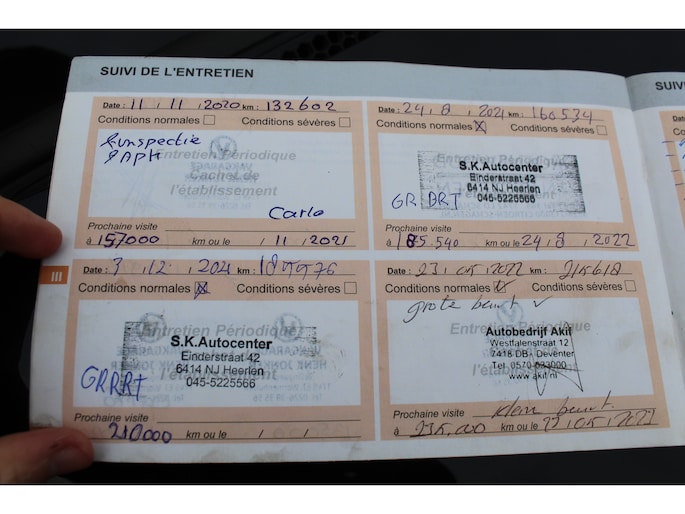 SUIVI DE L'ENTRETIEN
SUIV
Date : 11 / 11 / 2020 km : 132602
Conditions normales Conditions sévères
Entretien Périodique
Cachet de
l'établissement
Carlo
Prochaine visite
à 157000 km ou le / 11 / 2021
Date : 24 / 8 / 2021 km : 160534
Conditions normales X Conditions sévères
S.K.Autocenter
Einderstraat 42
6414 NJ Heerlen
045-5225566
GR. BRT
Prochaine visite
à 185.540 km ou le 24 / 8 / 2022
III
Date : 3 / 12 / 2021 km :
Conditions normales X Conditions sévères
Entretien Périodique
S.K.Autocenter
Einderstraat 42
6414 NJ Heerlen
045-5225566
GRRRT
Prochaine visite
à 210000 km ou le / /
Date : 23 / 05 / 2022 km : 215618
Conditions normales Conditions sévères
grote beurt ✓
Autobedrijf Akif
Westfalenstraat 12
7418 DB Deventer
Tel. 0570-633000
www.akif.nl
Prochaine visite klein beurt.
à 235.000 km ou le